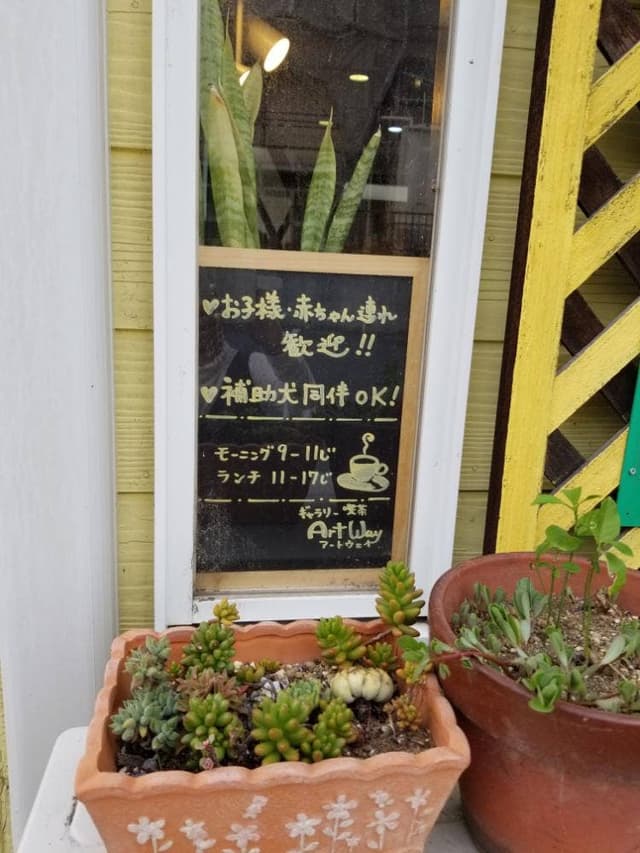 ♥お子様・赤ちゃん連れ
歓迎!!
♥補助犬同伴OK!
モーニング 9-11じ
ランチ 11-17じ
ギャラリー 喫茶
Art Way
アートウェイ